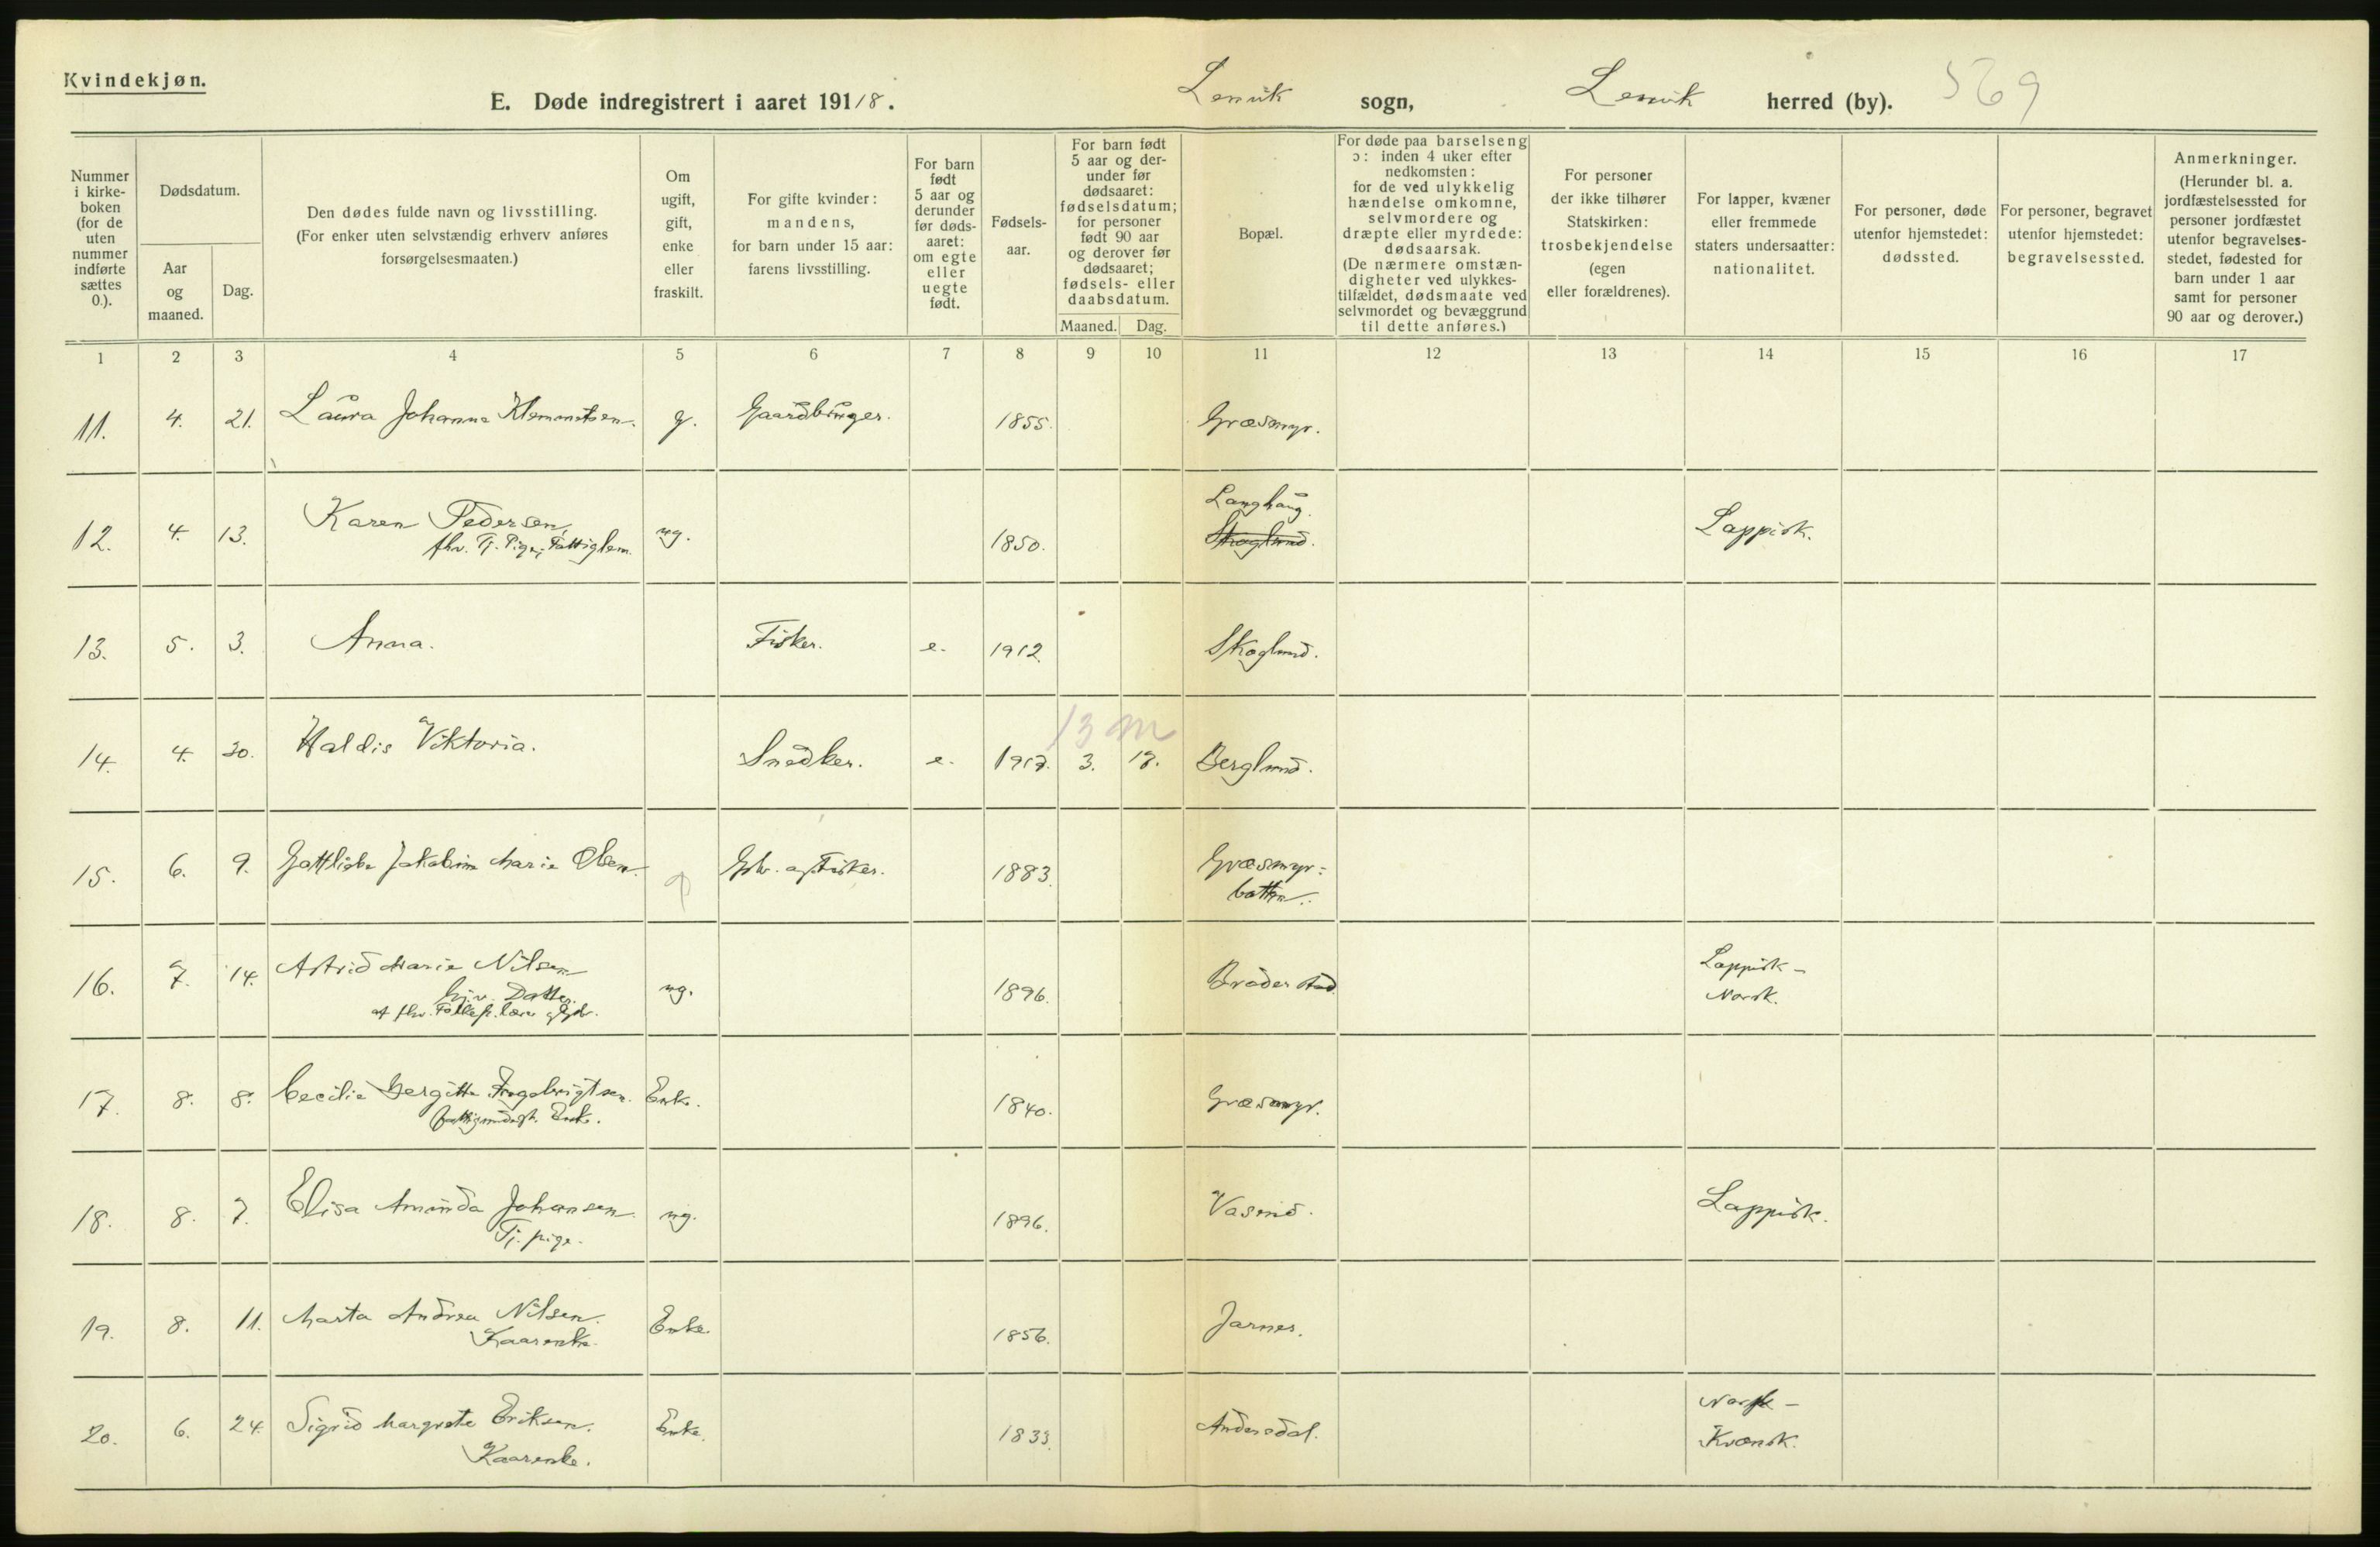 Kvindekjøn.
E. Døde indregistrert i aaret 19118.
Lenvik sogn, Lenvik herred (by). 569
Nummer i kirkeboken (for de uten nummer indførte sættes 0.).
Dødsdatum.
Aar og maaned.
Dag.
Den dødes fulde navn og livsstilling.
(For enker uten selvstændig erhverv anføres
forsørgelsesmaaten.)
Om ugift, gift, enke eller fraskilt.
For gifte kvinder:
mandens,
for barn under 15 aar:
farens livsstilling.
For barn født 5 aar og derunder før dødsaaret: om egte eller uegte født.
Fødselsaar.
For barn født 5 aar og derunder før dødsaaret: fødselsdatum; for personer født 90 aar og derover før dødsaaret; fødsels- eller daabsdatum.
Maaned.
Dag.
Bopæl.
For døde paa barselseng
ɔ: inden 4 uker efter
nedkomsten:
for de ved ulykkelig
hændelse omkomne,
selvmordere og
dræpte eller myrdede:
dødsaarsak.
(De nærmere omstæn-
digheter ved ulykkes-
tilfældet, dødsmaate ved
selvmordet og bevæggrund
til dette anføres.)
For personer
der ikke tilhører
Statskirken:
trosbekjendelse
(egen
eller forældrenes).
For lapper, kvæner
eller fremmede
staters undersaatter:
nationalitet.
For personer, døde
utenfor hjemstedet:
dødssted.
For personer, begravet
utenfor hjemstedet:
begravelsessted.
Anmerkninger.
(Herunder bl. a.
jordfæstelsessted for
personer jordfæstet
utenfor begravelses-
stedet, fødested for
barn under 1 aar
samt for personer
90 aar og derover.)
1 2 3 4 5 6 7 8 9 10 11 12 13 14 15 16 17
11. 4. 21. Laura Johanna Klemmetsen. g. Gaardbruger. 1855. Græsmyr.
12. 4. 13. Karen Pedersen, ug. 1850. Langhaug. Lappisk.
fhv. Tj. Pige, Fattiglem. Skoglund.
13. 5. 3. Anna. Fisker. e. 1912. Skoglund.
13 m
14. 4. 30. Haldis Viktoria. Snedker. e. 1917. 3. 17. Berglund.
15. 6. 9. Jakobine Marie Olsen. g Gbr. og Fisker. 1883. Græsmyr=
botten.
16. 7. 14. Astrid Marie Nilsen ug. 1896. Braderstad. Lappisk-
hjv. Datter Norsk.
af fhv. lærer og Gbr.
17. 8. 8. Cecilie Bergitte Ingebrigtsen. Enke. 1840. Græsmyr.
Enke.
18. 8. 7. Elisa Amanda Johansen ug. 1896. Lappisk.
Tj. pige.
19. 8. 11. Marta Andrea Nilsen. Enke. 1856. Jarnes.
Kaarenke.
20. 6. 24. Sigrid Margrete Eriksen. Enke. 1833. Andersdal. Norsk-
Kaarenke. Kvænsk.